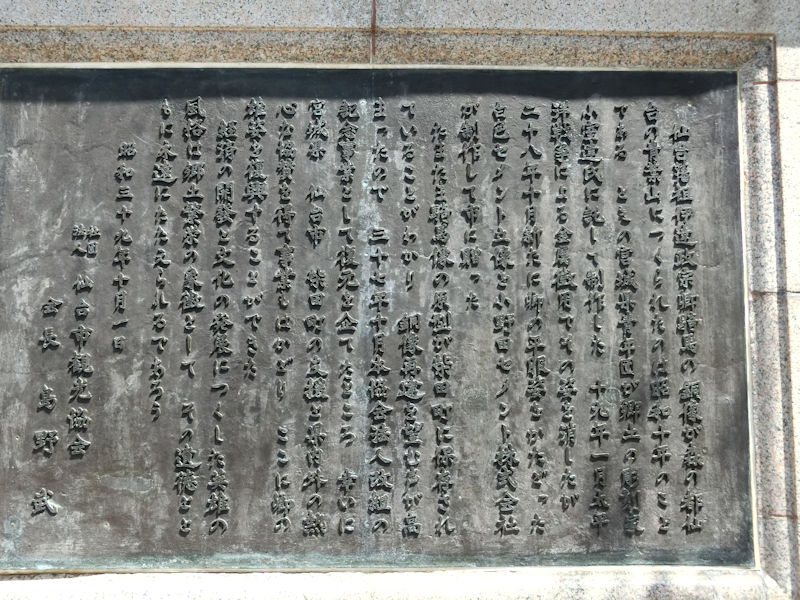 仙台藩祖伊達政宗卿騎馬の　銅像が森の都仙
台の青葉山につくられたのは昭和十年のこと
である　ときの宮城県青年団が郷土の彫刻家
小室達氏に託して制作した　十九年一月太平
洋戦争による金属徴用でその姿を消したが
二十八年十月新たに卿の平服姿をかたどった
白色セメント立像を小野田セメント株式会社
が制作して市に贈った
たまたま騎馬像の原型が柴田町に保存され
ていることがわかり　銅像再建を望む声が高
まったので　三十七年十月本協会法人改組の
記念事業として復元を企てたところ　幸いに
宮城県　仙台市　柴田町の支援と県内外の誠
心な協賛を得て事業もはかどり　ここに卿の
英姿を復興することができた
経済の開発と文化の発展につくした英雄の
風格は郷土繁栄の象徴として　その遺徳とと
もに永遠にたたえられるであろう
昭和三十九年十月一日
社団法人　仙台市観光協会
会長　島野　武